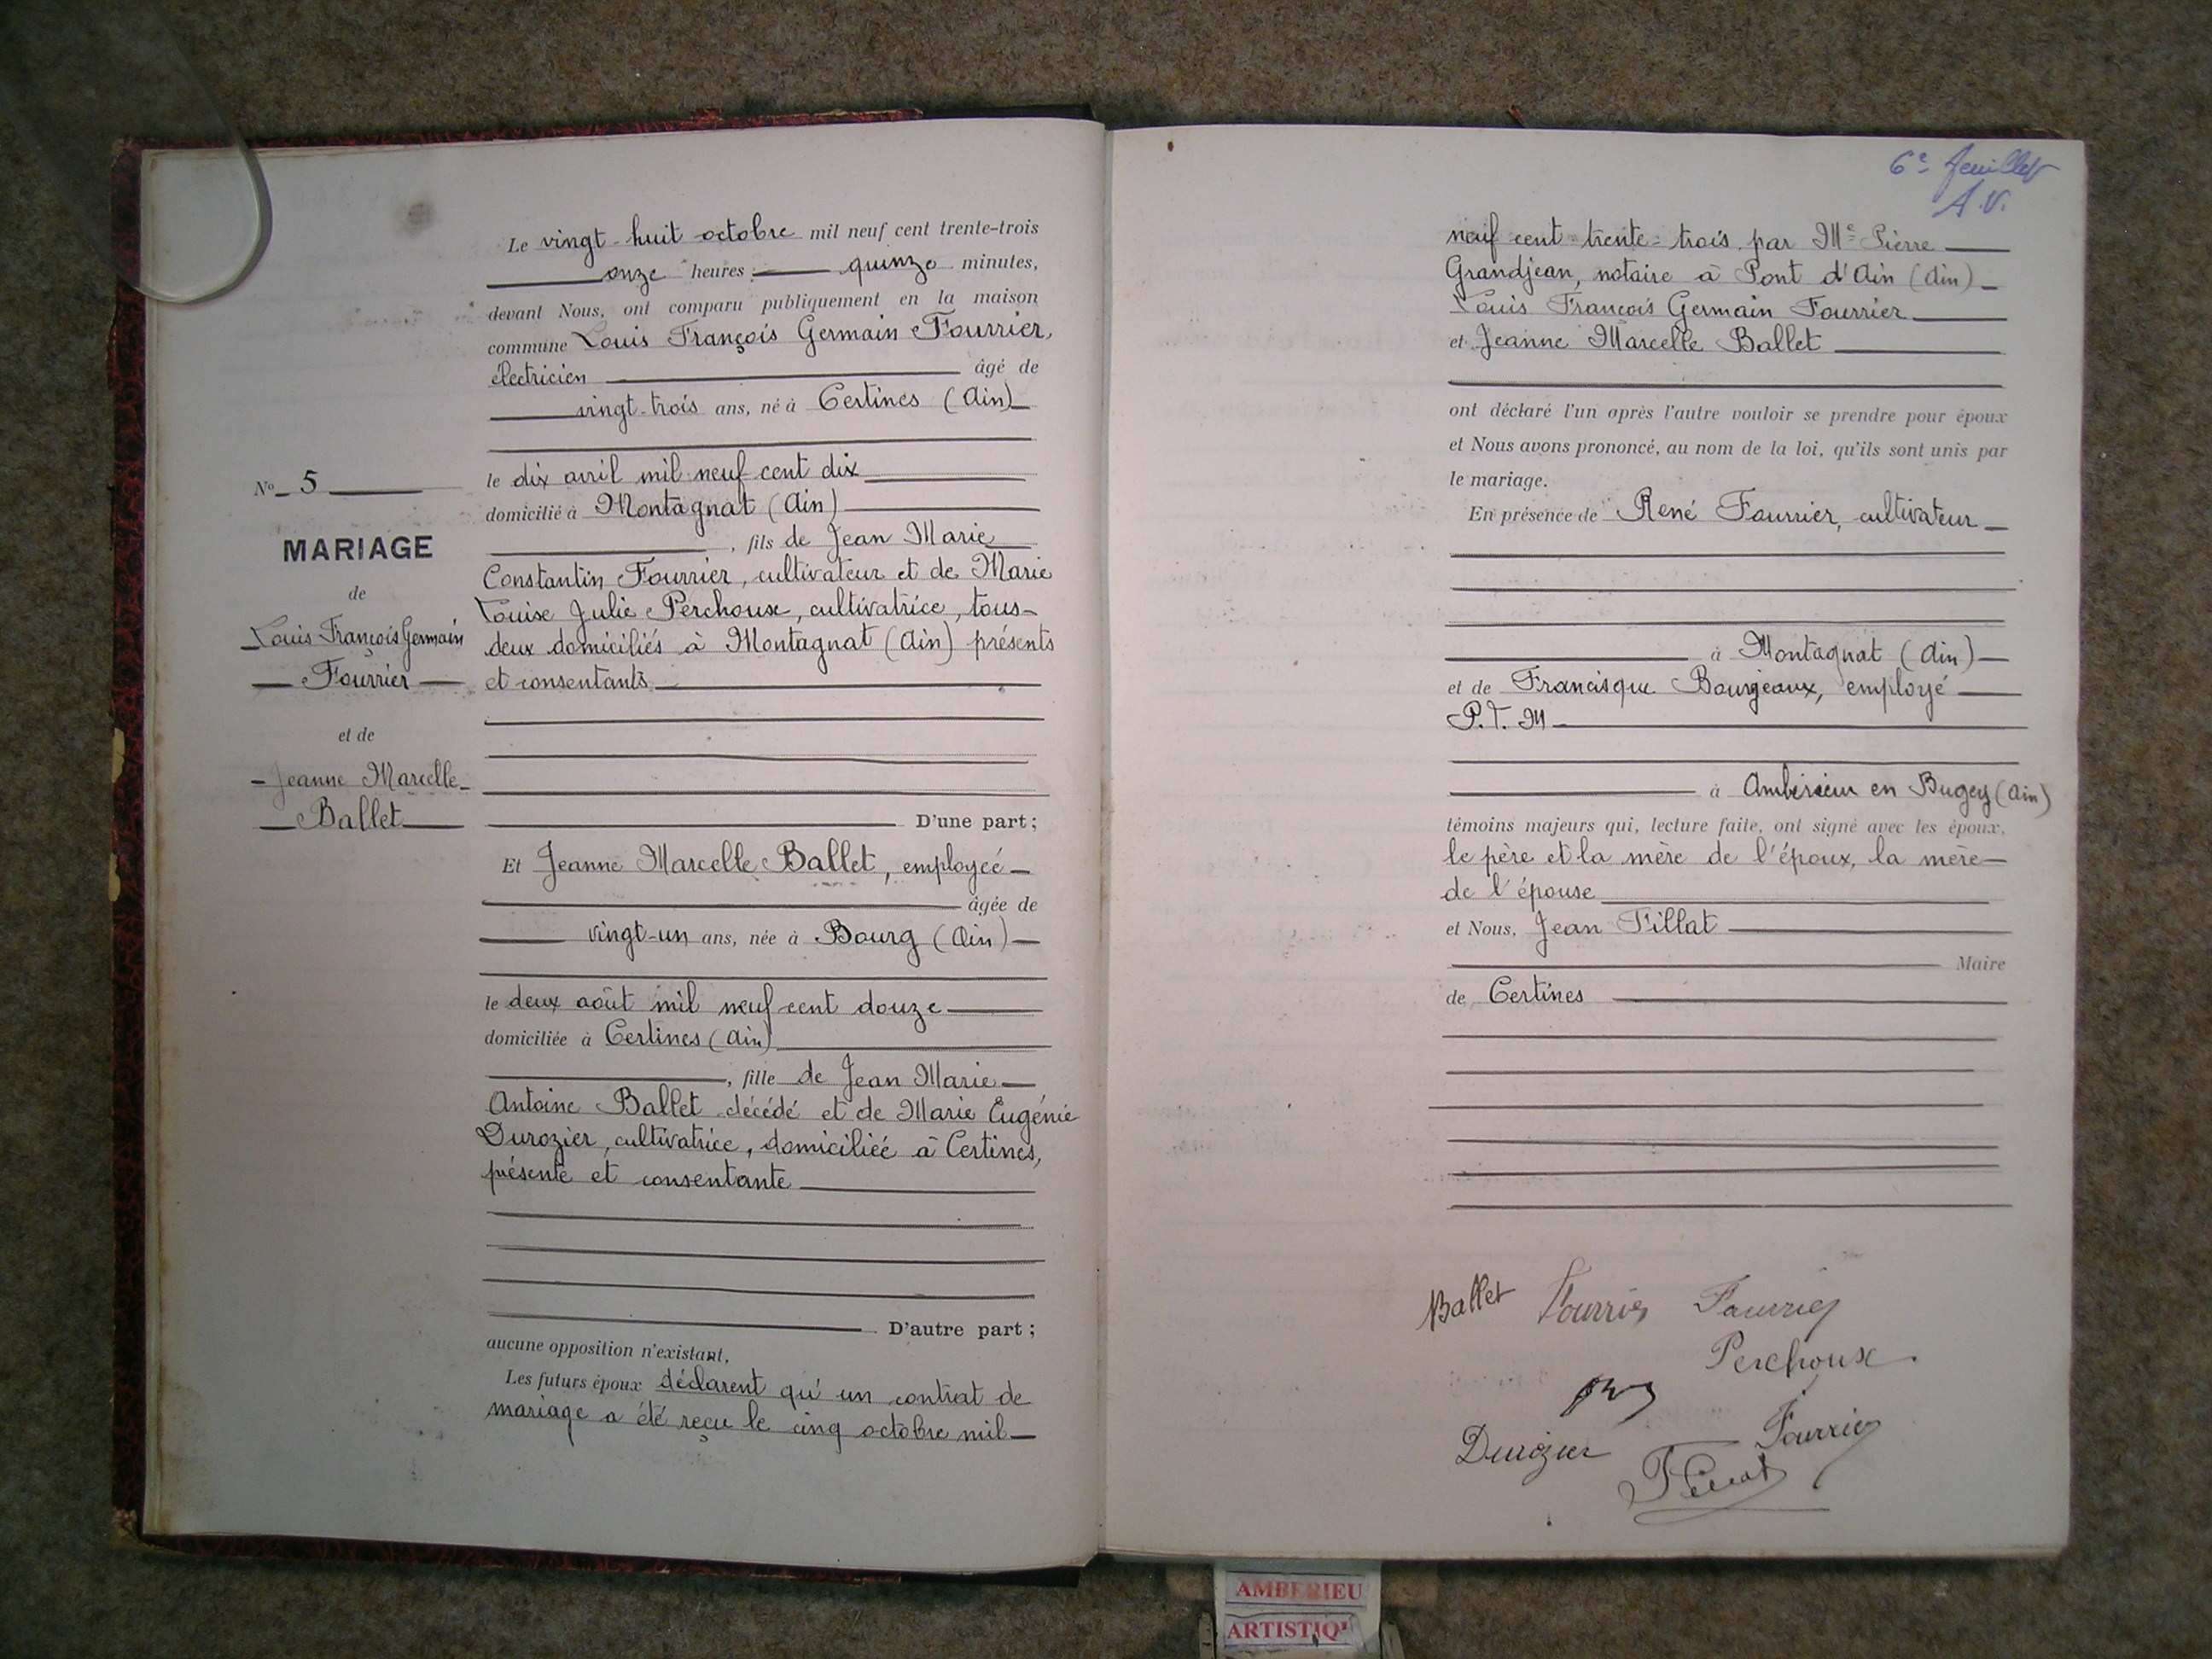 Le vingt-huit octobre mil neuf cent trente-trois
onze heures quinze minutes,
devant Nous, ont comparu publiquement en la maison
commune Louis François Germain Fourrier,
électricien âgé de
vingt-trois ans, né à Certines (Ain)
le dix avril mil neuf cent dix
domicilié à Montagnat (Ain)
, fils de Jean Marie
Constantin Fourrier, cultivateur et de Marie
Louise Julie Perchoux, cultivatrice, tous
deux domiciliés à Montagnat (Ain) présents
et consentants
D'une part;
Nº 5
MARIAGE
de
Louis François Germain
Fourrier
et de
Jeanne Marcelle
Ballet
Et Jeanne Marcelle Ballet, employée
âgée de
vingt-un ans, née à Bourg (Ain)
le deux août mil neuf cent douze
domiciliée à Certines (Ain)
, fille de Jean Marie
Antoine Ballet décédé et de Marie Eugénie
Durozier, cultivatrice, domiciliée à Certines,
présente et consentante
D'autre part;
aucune opposition n'existant,
Les futurs époux déclarent qu'un contrat de
mariage a été reçu le cinq octobre mil
6e feuillet
A.V.
neuf cent trente-trois par Me Pierre
Grandjean, notaire à Pont d'Ain (Ain)
Louis François Germain Fourrier
et Jeanne Marcelle Ballet
ont déclaré l'un après l'autre vouloir se prendre pour époux
et Nous avons prononcé, au nom de la loi, qu'ils sont unis par
le mariage.
En présence de René Fourrier, cultivateur
à Montagnat (Ain)
et de Francisque Bourgeaux, employé
P.T.M
à Ambérieu en Bugey (Ain)
témoins majeurs qui, lecture faite, ont signé avec les époux,
le père et la mère de l'époux, la mère
de l'épouse
et Nous, Jean Tillat
Maire
de Certines
Ballet Fourrier Fourrier
Perchoux
Durozier Fourrier
AMBERIEU
ARTISTIQ